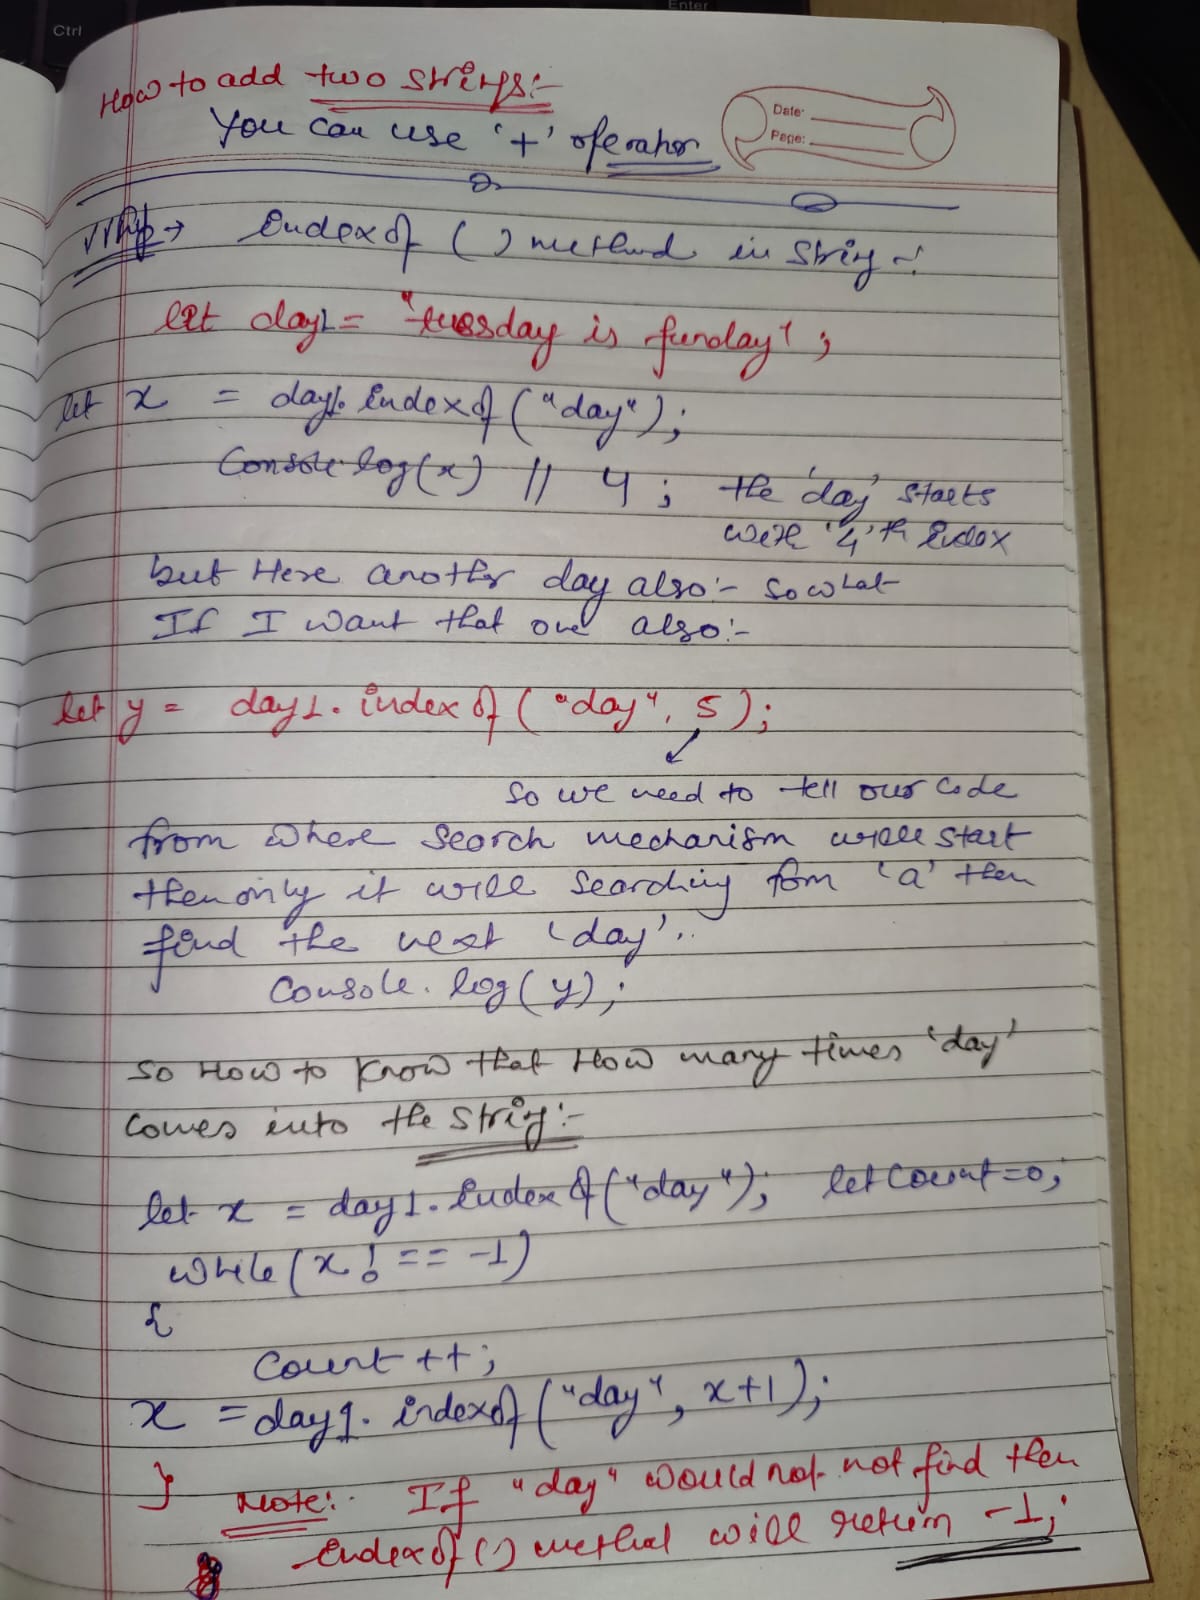 Ctrl
Enter
How to add two strings:-
You can use '+' operator
Date:
Page:
VVImp → indexOf ( ) method in string -:
let day1 = "tuesday is funday";
let x = day1.indexOf("day");
Console.log(x) // 4 ; the 'day' starts
with '4'th index
but Here another day also:- so what
If I want that one also:-
let y = day1.indexOf("day", 5);
so we need to tell our code
from where search mechanism will start
then only it will searching from 'a' then
find the next 'day'..
Console.log(y);
So How to know that How many times 'day'
comes into the string:-
let x = day1.indexOf("day"); let count=0;
while(x !== -1)
{
Count ++;
x = day1.indexOf("day", x+1);
}
Note:- If "day" would not not find then
indexOf() method will return -1;